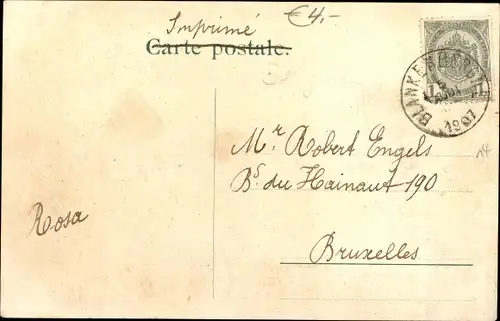 Imprimé
€4,-
Carte postale.
BLANKENBERGHE
1907
Mr Robert Engels
Bd du Hainaut 190
Bruxelles
Rosa